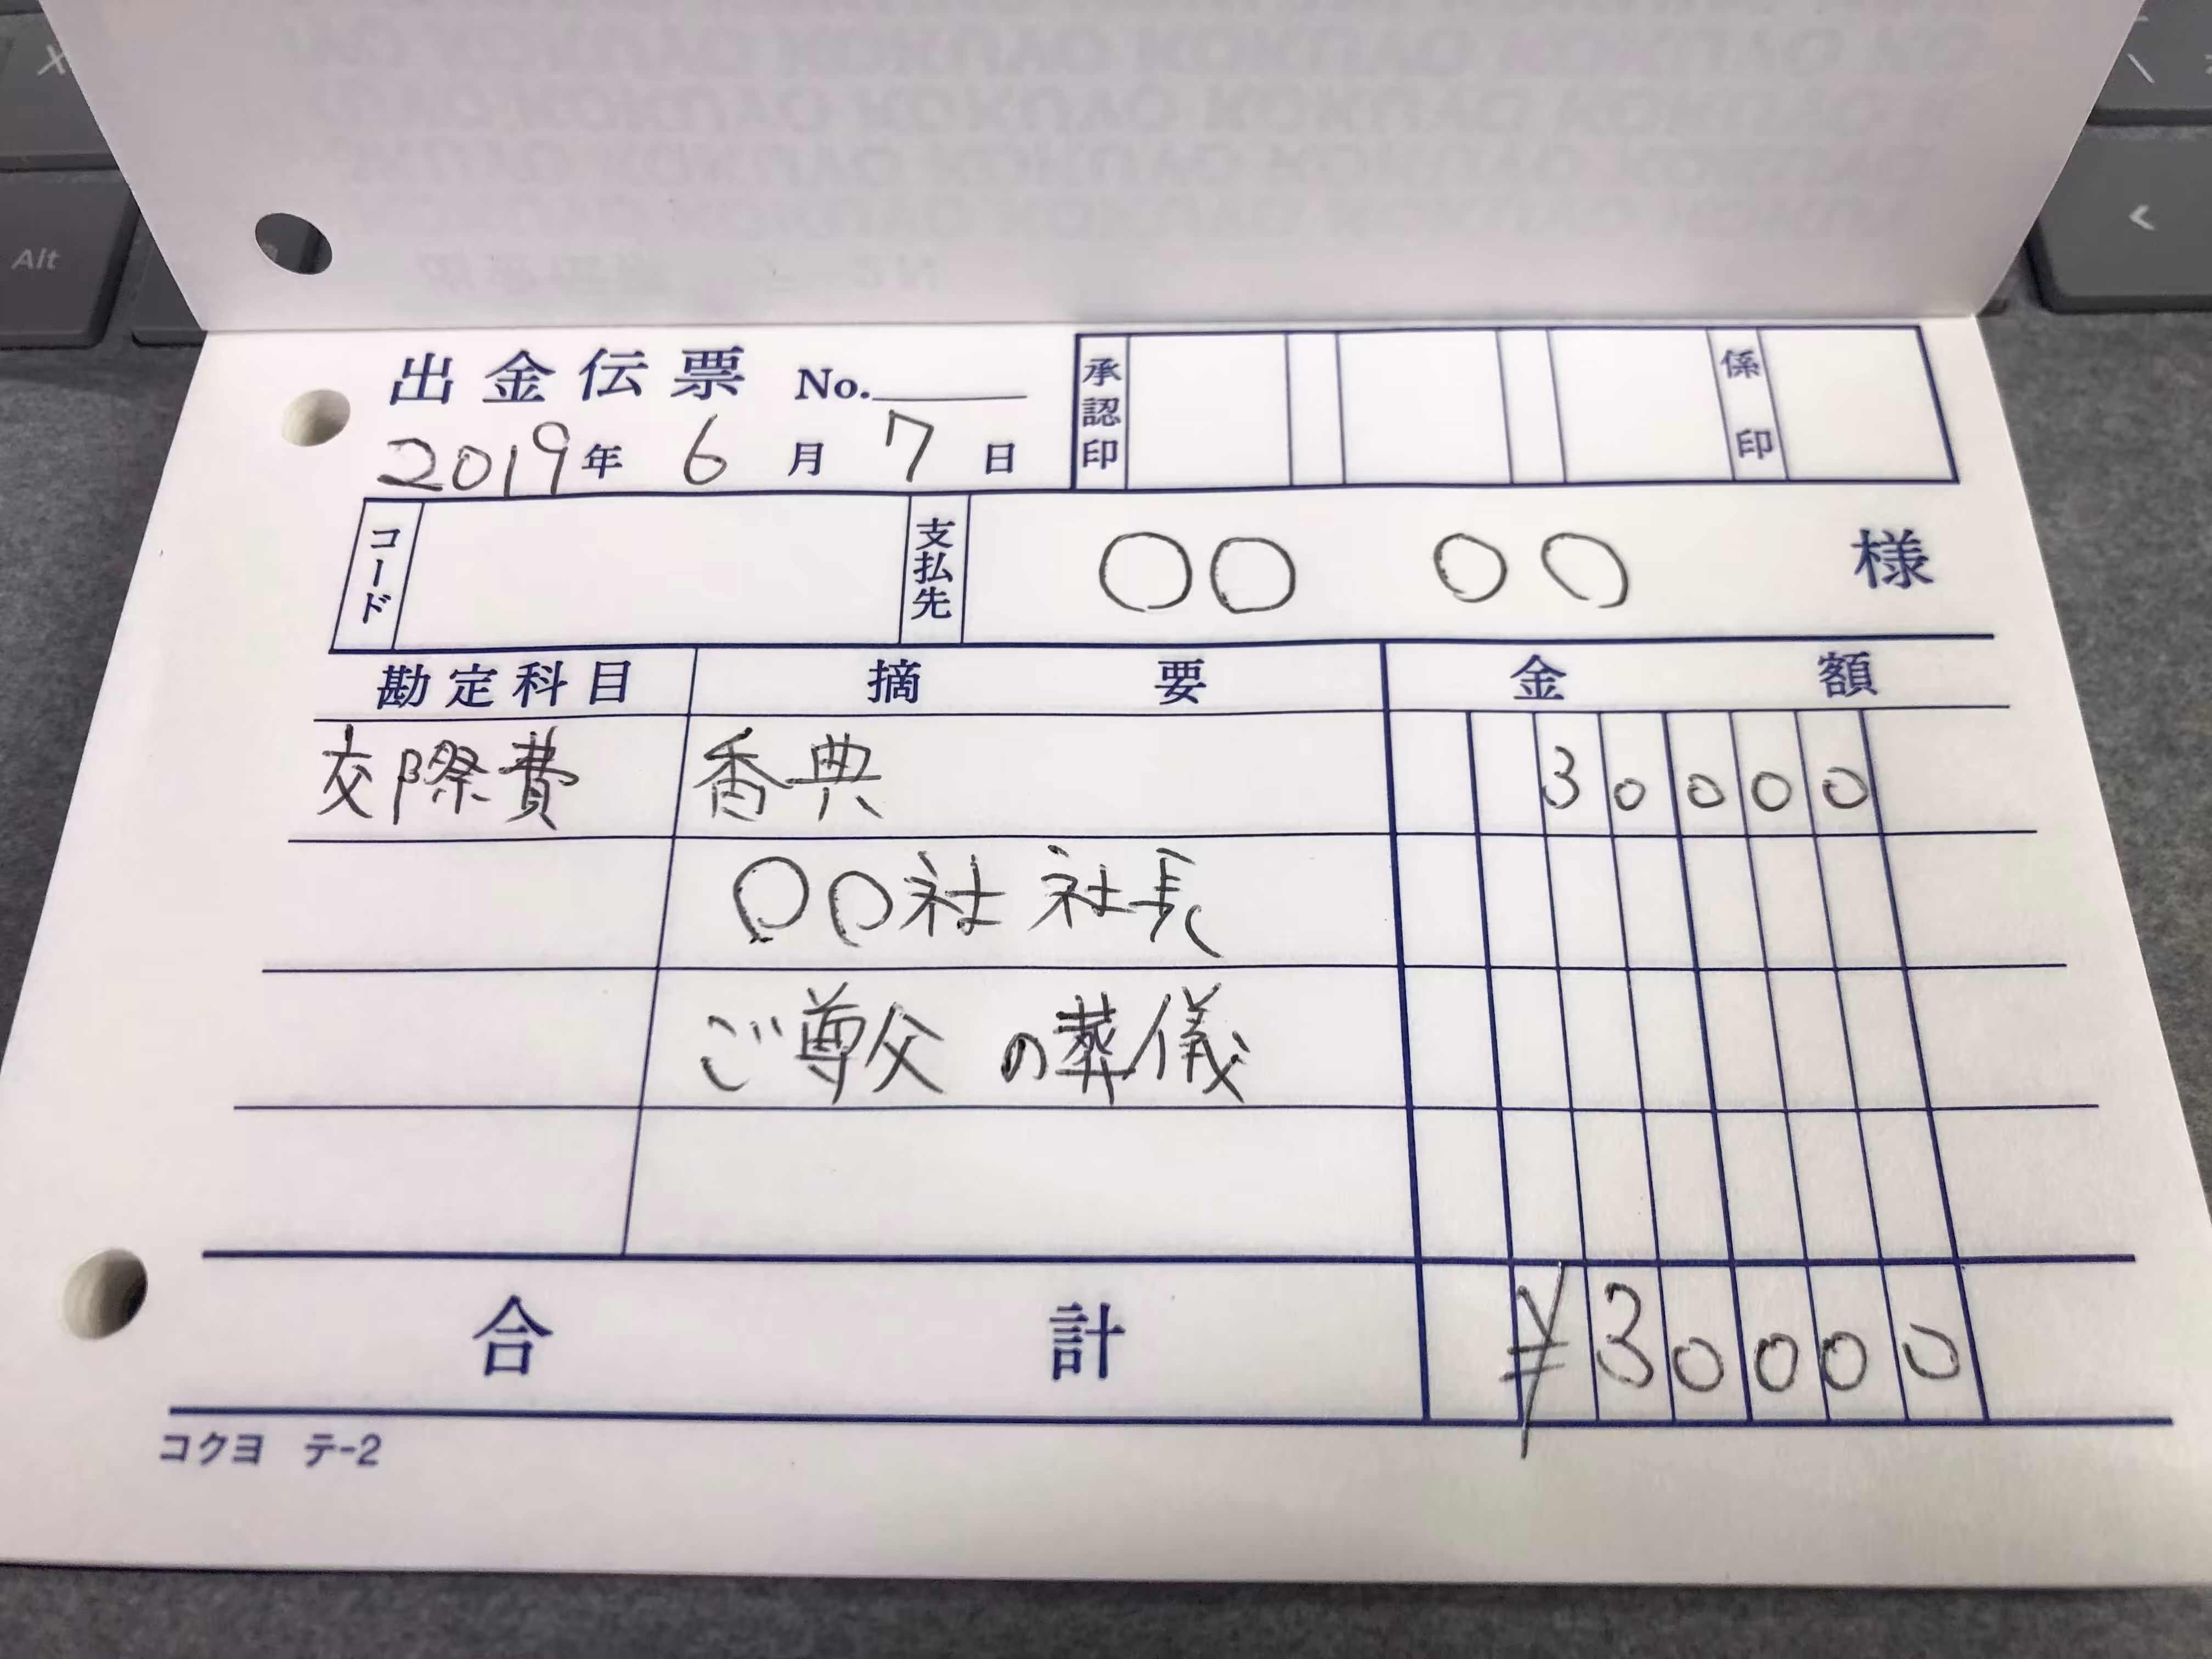 出金伝票 No.
2019年 6月 7日
承認印 係印
コード 支払先 〇〇 〇〇 様
勘定科目 摘要 金額
交際費 香典 30000
〇〇社 社長
ご尊父の葬儀
合計 ¥30000
コクヨ テ-2
X
Alt
\
<